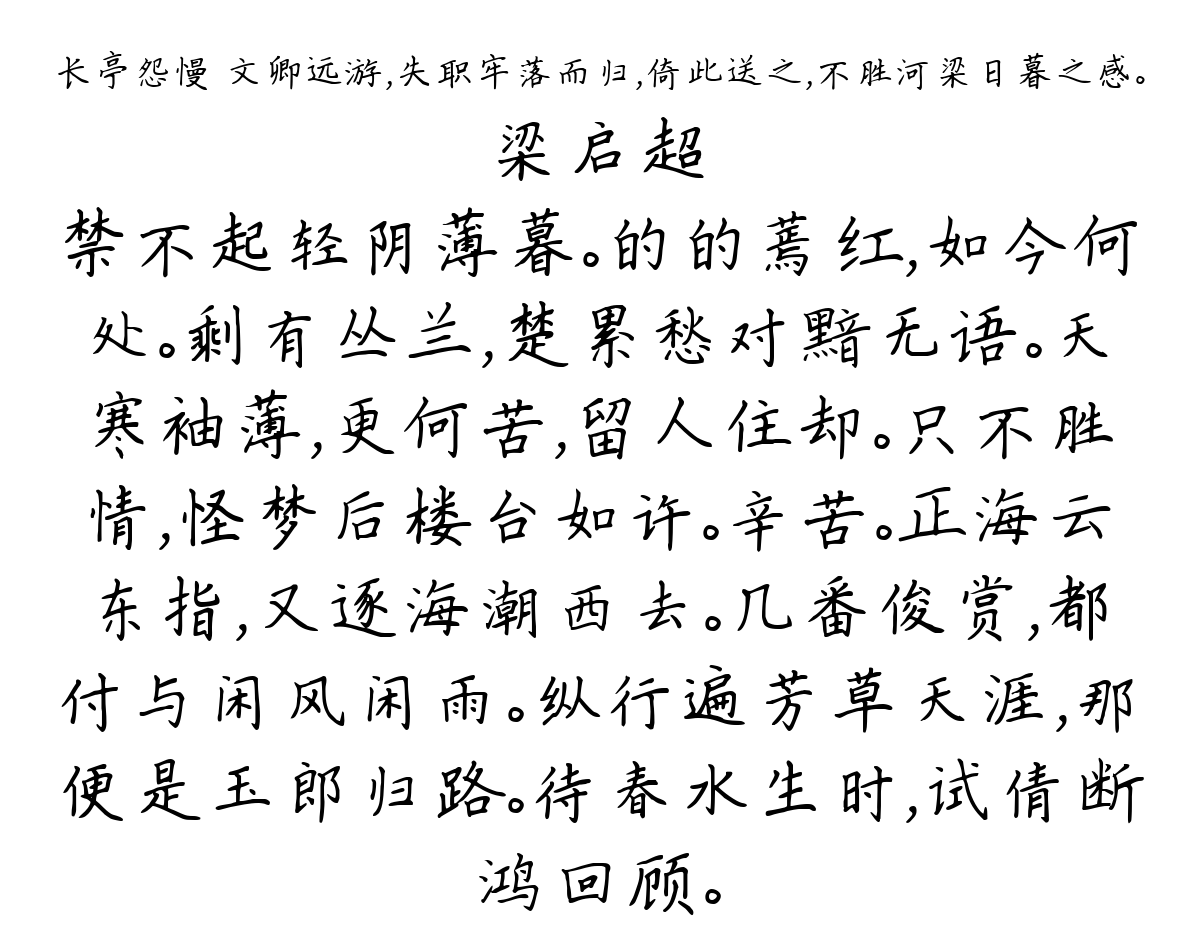 长亭怨慢 文卿远游,失职牢落而归,倚此送之,不胜河梁日暮之感。
梁启超
禁不起轻阴薄暮。的的蔫红,如今何
处。剩有丛兰,楚累愁对黯无语。天
寒袖薄,更何苦,留人住却。只不胜
情,怪梦后楼台如许。辛苦。正海云
东指,又逐海潮西去。几番俊赏,都
付与闲风闲雨。纵行遍芳草天涯,那
便是玉郎归路。待春水生时,试倩断
鸿回顾。